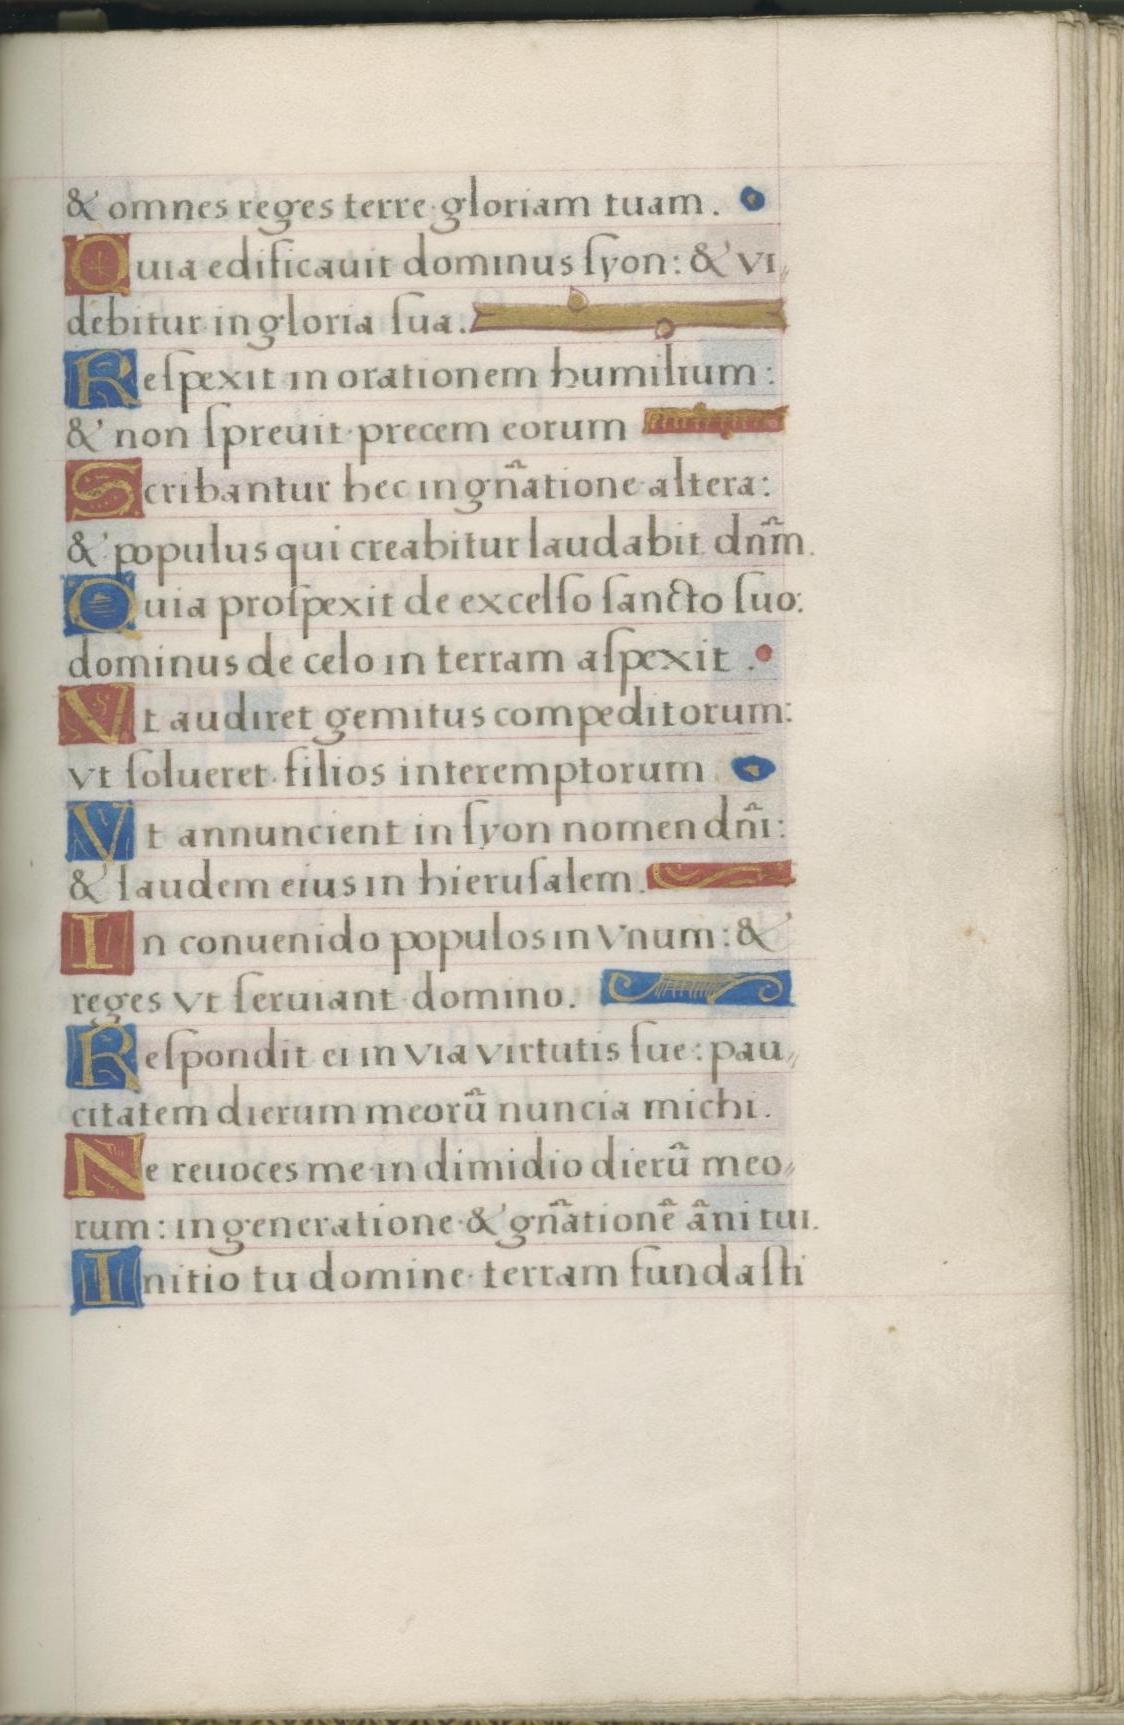 & omnes reges terre gloriam tuam.
Quia edificauit dominus ſyon: & vi„
debitur in gloria ſua.
Reſpexit in orationem humilium:
& non ſpreuit precem eorum
Scribantur hec in gñatione altera:
& populus qui creabitur laudabit dnm̃.
Quia proſpexit de excelſo ſancto ſuo:
dominus de celo in terram aſpexit .
Vt audiret gemitus compeditorum:
vt ſolueret filios interemptorum
Vt annuncient in ſyon nomen dñi:
& laudem eius in hieruſalem.
In conuenido populos in vnum: &
reges vt ſeruiant domino.
Reſpondit ei in via virtutis ſue: pau„
citatem dierum meorũ nuncia michi.
Ne reuoces me in dimidio dierũ meo„
rum: in generatione & gñationẽ ãni tui.
Initio tu domine terram fundaſti